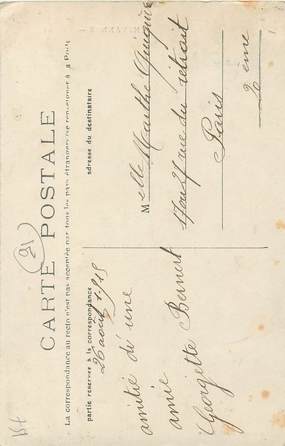 CARTE POSTALE
La correspondance au recto n'est pas acceptée par tous les pays étrangers (se renseigner à la Poste)
partie réservée à la correspondance
adresse du destinataire
26 août 1915
amitié d'une
amie
Georgette Bernert
Melle Marthe
rue du retrait
Paris
2 ème